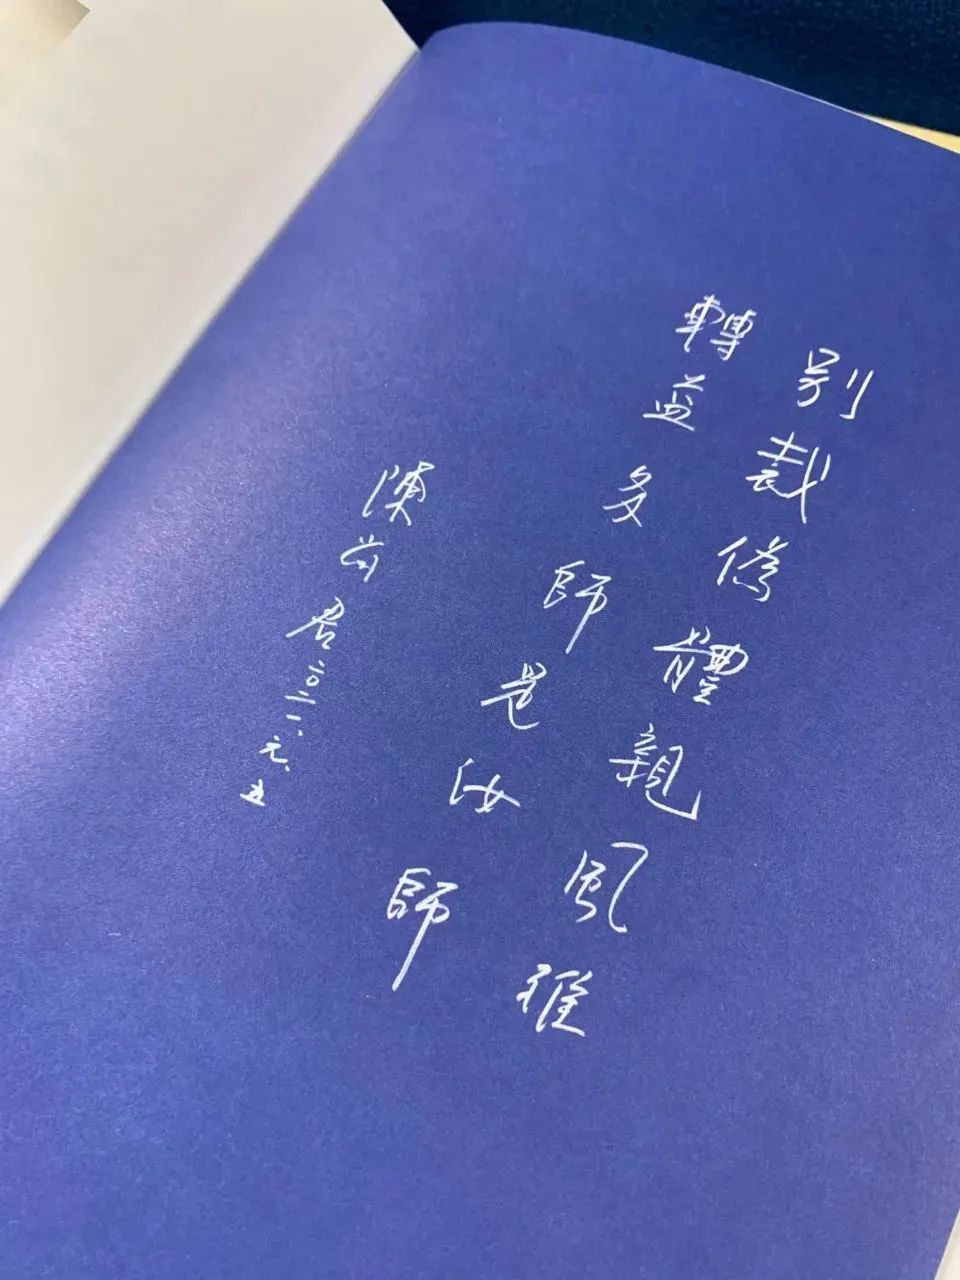 別裁偽體親風雅
轉益多師是汝師
陳尚君 二〇二一、六、五